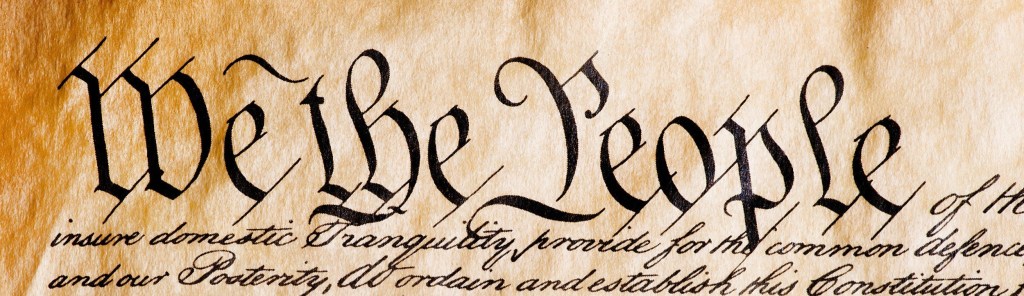 We the People of the
insure domestic Tranquility, provide for the common defence
and our Posterity, do ordain and establish this Constitution